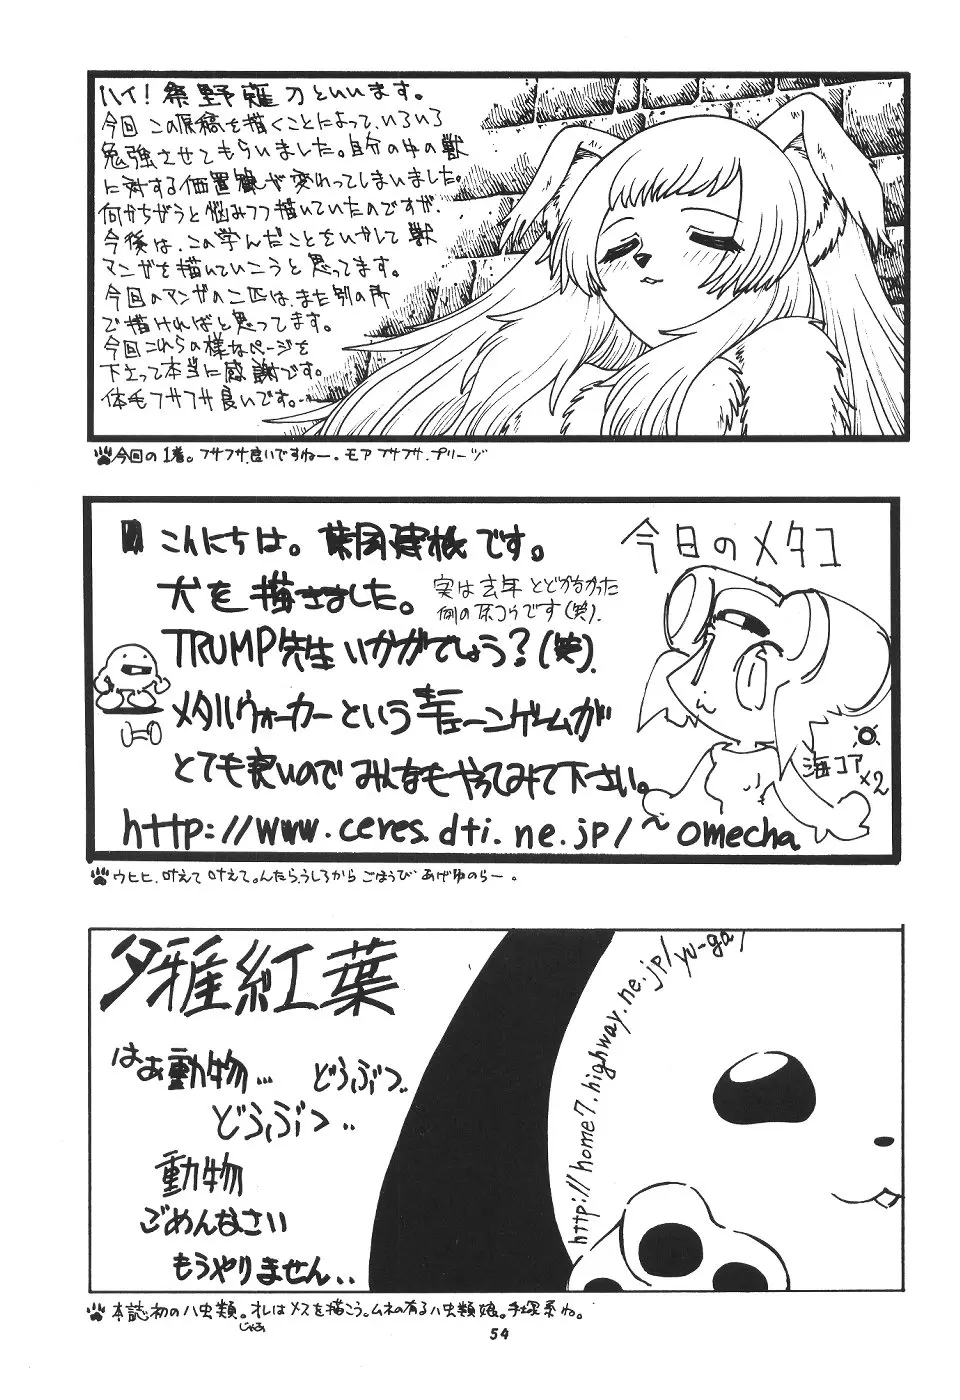 ハイ!祭野薙刀といいます。
今回この原稿を描くことによって、いろいろ
勉強させてもらいました。自分の中の獣
に対する価値観が変わってしまいました。
何かちがうと悩みつつ描いていたのですが、
今後は、この学んだことをいかして獣
マンガを描いていこうと思ってます。
今回のマンガの二匹は、また別の所
で描ければと思ってます。
今回これらの様なページを
下さって本当に感謝です。
体毛フサフサ良いです。
今回の1番。フサフサ良いですねー。モアフサフサ、プリーヅ
こんにちは。です。
犬を描きました。
実は去年とどかなかった
例の原コウです(笑)。
TRUMP先生いかがでしょう?(笑)。
メタルウォーカーというゲームが
とても良いのでみんなもやってみて下さい。
http://www.ceres.dti.ne.jp/~omecha
今日のメタコ
海コア
×2
ウヒヒ、叶えて叶えて。んたら、うしろからごほうびあげゆのらー。
夕雅紅葉
はぁ動物… どうぶつ..
どうぶつ..
動物
ごめんなさい
もうやりません..
http://home7.highway.ne.jp/yu-ga/
本誌初のハ虫類。オレはメスを描こう。ムネの有るハ虫類娘。手塚系ね。
54